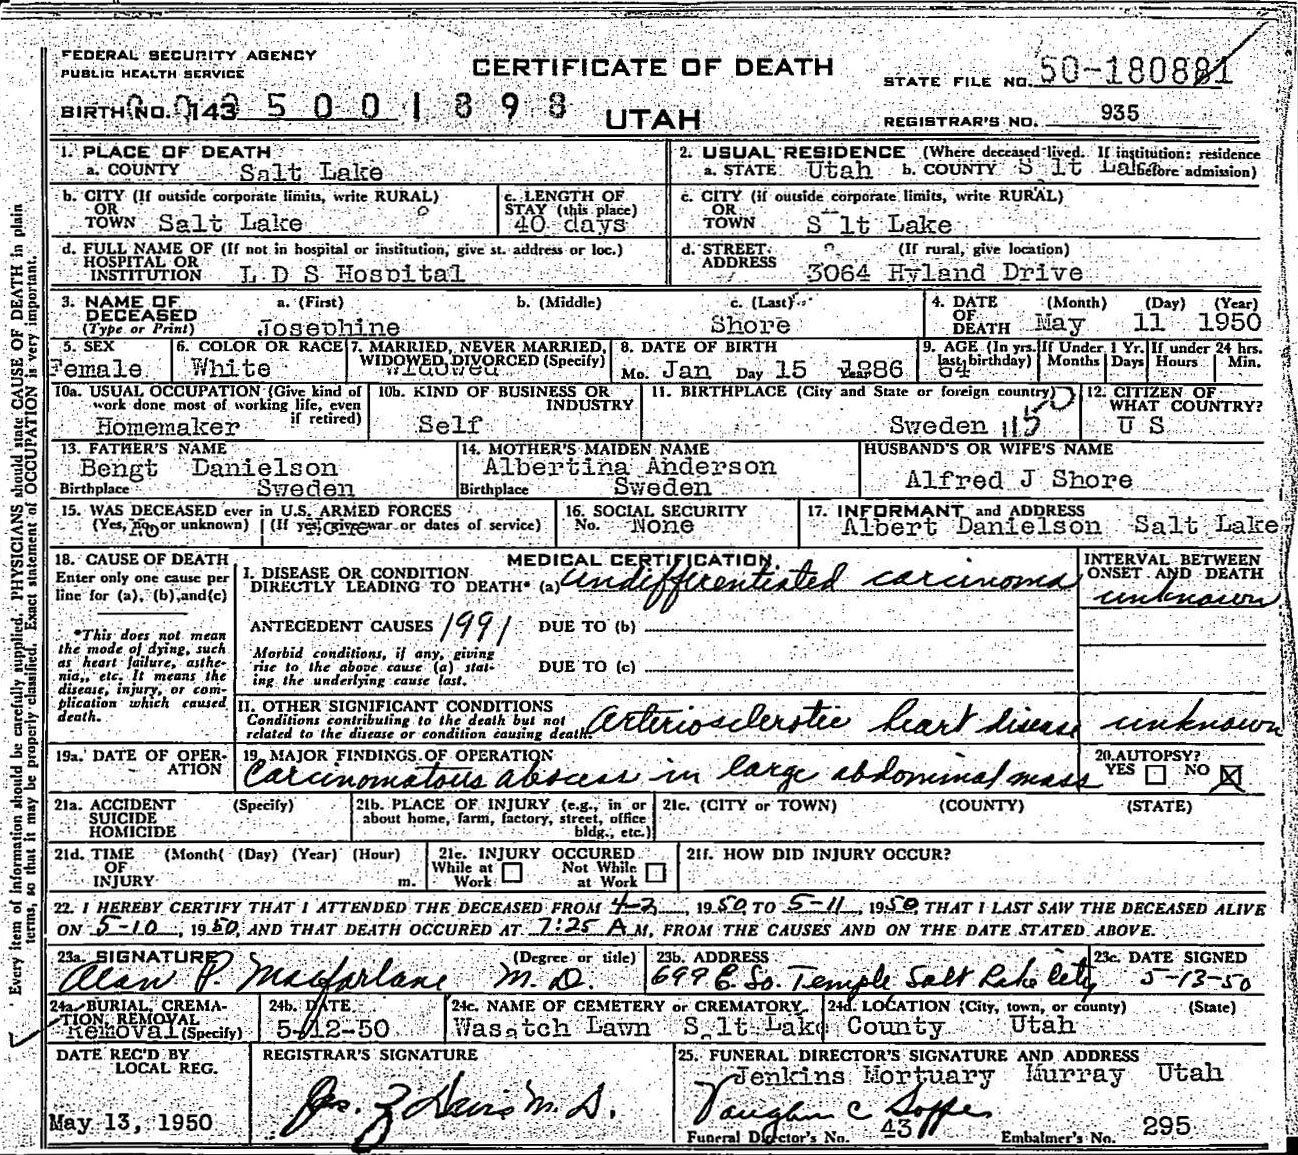 FEDERAL SECURITY AGENCY
PUBLIC HEALTH SERVICE
CERTIFICATE OF DEATH
STATE FILE NO. 50-180881
BIRTH NO. 143 5001898
UTAH
REGISTRAR'S NO. 935
1. PLACE OF DEATH
a. COUNTY Salt Lake
2. USUAL RESIDENCE (Where deceased lived. If institution: residence before admission)
a. STATE Utah b. COUNTY S lt Lake
b. CITY (If outside corporate limits, write RURAL)
OR
TOWN Salt Lake
c. LENGTH OF
STAY (this place)
40 days
c. CITY (if outside corporate limits, write RURAL)
OR
TOWN S lt Lake
d. FULL NAME OF (If not in hospital or institution, give st. address or loc.)
HOSPITAL OR
INSTITUTION L D S Hospital
d. STREET (If rural, give location)
ADDRESS 3064 Hyland Drive
3. NAME OF DECEASED (Type or Print)
a. (First) b. (Middle) c. (Last)
Josephine Shore
4. DATE OF DEATH (Month) (Day) (Year)
May 11 1950
5. SEX
Female
6. COLOR OR RACE
White
7. MARRIED, NEVER MARRIED,
WIDOWED, DIVORCED (Specify)
Widowed
8. DATE OF BIRTH
Mo. Jan Day 15 Year 1886
9. AGE (In yrs. last birthday) If Under 1 Yr. Months Days If under 24 hrs. Hours Min.
64
10a. USUAL OCCUPATION (Give kind of
work done most of working life, even
if retired)
Homemaker
10b. KIND OF BUSINESS OR
INDUSTRY
Self
11. BIRTHPLACE (City and State or foreign country)
Sweden 115
12. CITIZEN OF
WHAT COUNTRY?
U S
13. FATHER'S NAME
Bengt Danielson
Birthplace Sweden
14. MOTHER'S MAIDEN NAME
Albertina Anderson
Birthplace Sweden
HUSBAND'S OR WIFE'S NAME
Alfred J Shore
15. WAS DECEASED ever in U.S. ARMED FORCES
(Yes, no, or unknown) (If yes, give war or dates of service)
no None
16. SOCIAL SECURITY
No. None
17. INFORMANT and ADDRESS
Albert Danielson Salt Lake
18. CAUSE OF DEATH
Enter only one cause per
line for (a), (b), and (c)
*This does not mean
the mode of dying, such
as heart failure, asthe-
nia, etc. It means the
disease, injury, or com-
plication which caused
death.
MEDICAL CERTIFICATION
I. DISEASE OR CONDITION
DIRECTLY LEADING TO DEATH* (a) undifferentiated carcinoma
INTERVAL BETWEEN
ONSET AND DEATH
unknown
ANTECEDENT CAUSES 1991 DUE TO (b)
Morbid conditions, if any, giving
rise to the above cause (a) stat-
ing the underlying cause last.
DUE TO (c)
II. OTHER SIGNIFICANT CONDITIONS
Conditions contributing to the death but not
related to the disease or condition causing death.
Arteriosclerotic heart disease unknown
19a. DATE OF OPER-
ATION
19. MAJOR FINDINGS OF OPERATION
Carcinomatous abscess in large abdominal mass
20. AUTOPSY?
YES NO X
21a. ACCIDENT (Specify)
SUICIDE
HOMICIDE
21b. PLACE OF INJURY (e.g., in or
about home, farm, factory, street, office
bldg., etc.)
21c. (CITY or TOWN) (COUNTY) (STATE)
21d. TIME (Month( (Day) (Year) (Hour)
OF
INJURY m.
21e. INJURY OCCURED
While at Work Not While at Work
21f. HOW DID INJURY OCCUR?
22. I HEREBY CERTIFY THAT I ATTENDED THE DECEASED FROM 4-2, 1950 TO 5-11, 1950, THAT I LAST SAW THE DECEASED ALIVE
ON 5-10, 1950, AND THAT DEATH OCCURED AT 7:25 A M, FROM THE CAUSES AND ON THE DATE STATED ABOVE.
23a. SIGNATURE (Degree or title)
Alan P. Macfarlane M.D.
23b. ADDRESS
699 E. So. Temple Salt Lake City
23c. DATE SIGNED
5-13-50
24a. BURIAL, CREMA-
TION REMOVAL
Removal (Specify)
24b. DATE
5-12-50
24c. NAME OF CEMETERY or CREMATORY
Wasatch Lawn
24d. LOCATION (City, town, or county) (State)
S lt Lake County Utah
DATE REC'D BY
LOCAL REG.
May 13, 1950
REGISTRAR'S SIGNATURE
Davis M.D.
25. FUNERAL DIRECTOR'S SIGNATURE AND ADDRESS
Jenkins Mortuary Murray Utah
Vaughn C
Funeral Director's No. 43 Embalmer's No. 295
Every item of information should be carefully supplied. PHYSICIANS should state CAUSE OF DEATH in plain
terms, so that it may be properly classified. Exact statement of OCCUPATION is very important.